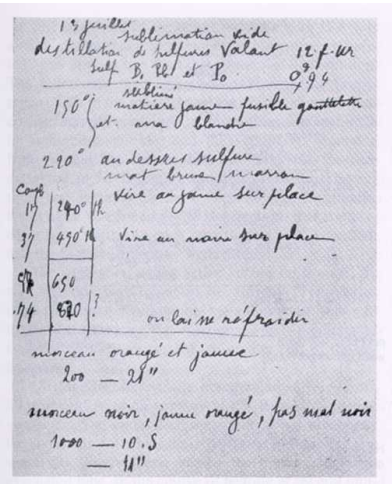 13 juillet
sublimation vide
distillation de sulfures valant 12 f. Ur
Sulf Bi Pb et Po 0g,94
sublimé
150° matière jaune fusible gouttelettes
et blanche
290° au dessus sulfure
mat brun / marron
240° vire au jaune sur place
37 450° vire au noir sur place
650
74 820 ? on laisse refroidir
morceau orangé et jaune
200 — 21"
morceau noir, jaune orangé, pas mat noir
1000 — 10.5
— 11"